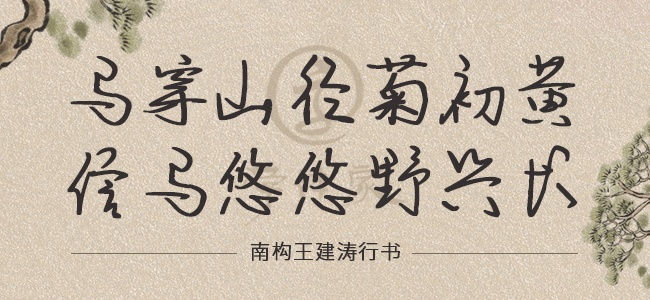 马穿山径菊初黄
信马悠悠野兴长
南构王建涛行书